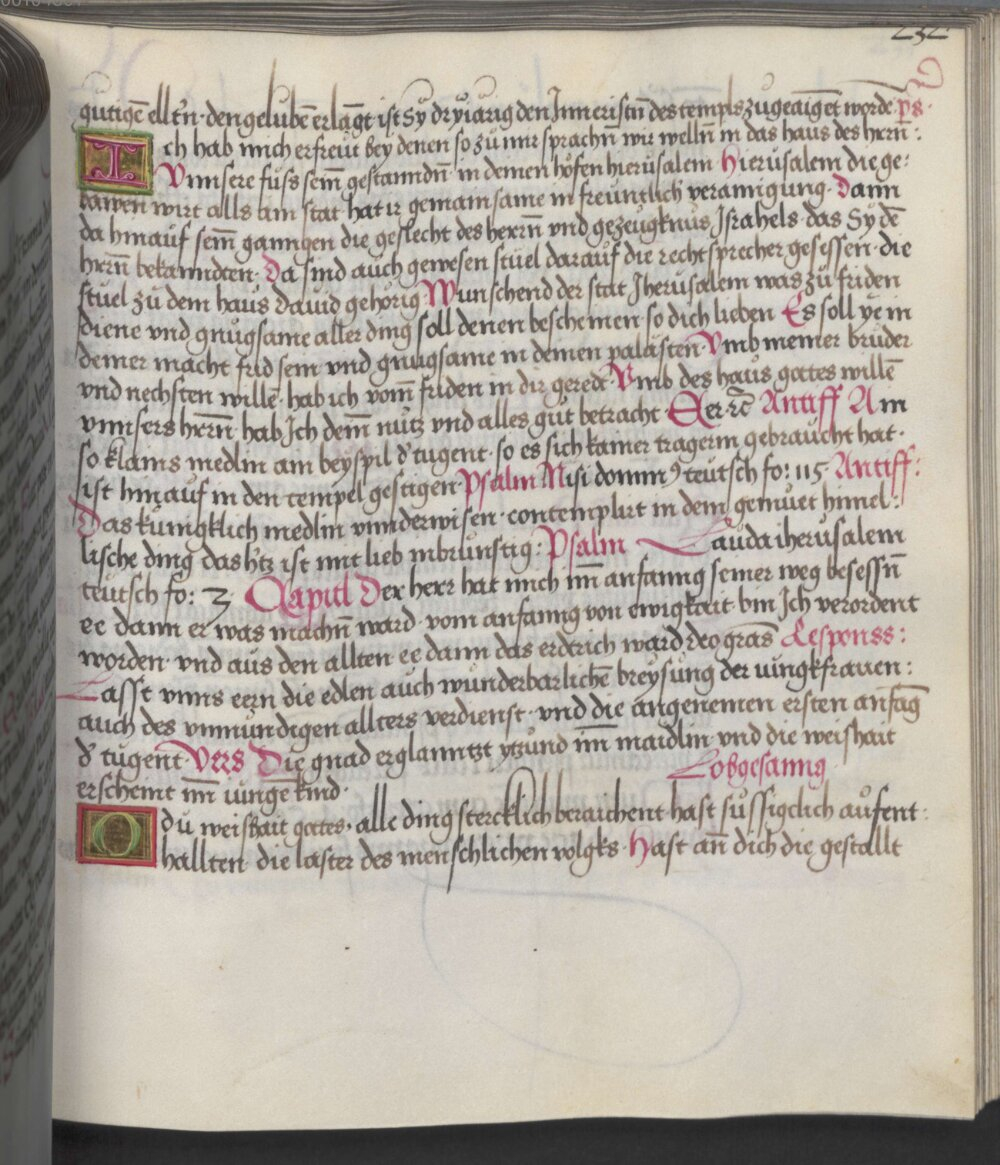 232
gutigē elltn̄· den gelubē erlāgt ist Sy drÿiarig den Inneristn̄ des templs zugeaigēt worde· ps·
Ich hab mich erfreut bey denen so zu mir sprachn̄ wir welln̄ in das haus des hern̄:
Vnnsere fuss sein̄ gestanndn̄· in deinen höfen hierusalem Hierusalem die ge:
bawen wirt alls ain stat· hat ir gemainsame in freuntlich verainigung· Dann
da hinauf sein̄ ganngen die geslecht des herrn̄ vnd gezeugknus Israhels· das Sy dē
hrrn̄ bekanndten· Da sind auch gewesen stuel darauf die rechtsprecher gesessen· die
stuel zu dem haus dauid gehorig Wunschend der stat Jherusalem was zu friden
diene vnd gnugsame aller ding soll denen bescheinen so dich lieben Es soll ye in
deiner macht frid sein vnd gnugsame in deinen palasten· Vmb meiner bruder
vnd nechsten willē· hab ich vom̄ friden in dir geredt· Vmb des haus gottes willē
vnnsers hrrn̄ hab Ich dem̄ nutz vnd alles gut betracht· Antiff Am
so klains medlin am beyspil d' tugent· so es sich kainer tragerin gebraucht hat·
ist hinauf in den tempel gestigen· Psalm Nisi domin9 teutsch fo: 115 Antiff:
Das kunigklich medlin vnnderwisen· contemplirt in dem gemuet himel:
lische ding das h'tz ist mit lieb inbrunstig: Psalm Lauda iherusalem
teutsch fo: 3 Capitl Der herr hat mich im̄ anfanng seiner weg besessn̄
ee dann er was machn̄ ward· vom anfanng von ewigkait· bin Ich verordent
worden· vnd aus den allten· ee dann das erdtrich ward deo gr̄as Responss:
Lasst vnns eern die edlen auch wunderbarlichē breysung der iungkfrauen:
auch des vnmundigen allters verdienst· vnd die angenemen ersten anfāg
d' tugent· Vers Die gnad erglanntzt ytzund im̄ maidlin vnd die weishait
erscheint im̄ iungē kind· Lobgesanng
O du weishait gottes· alle ding stercklich beraichent· hast sussigclich aufent:
hallten· die laster des menschlichen volgks· Hast an̄ dich die gestallt